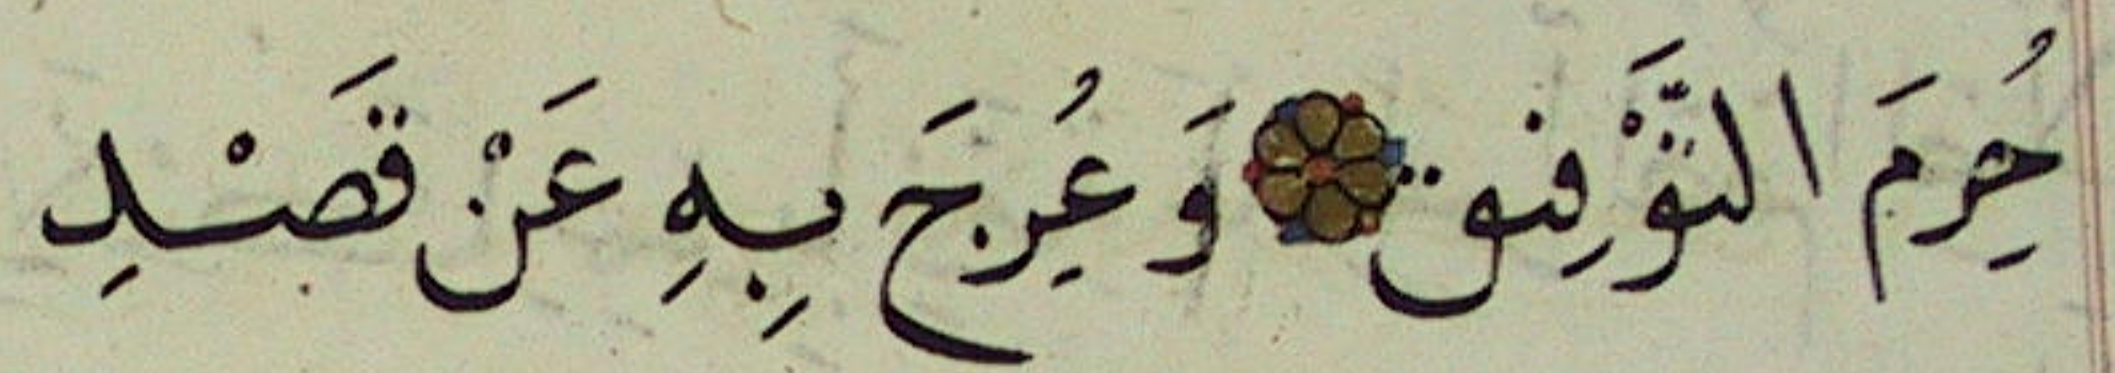 حُرِمَ التَّوْفِيقَ وَعُرِجَ بِهِ عَنْ قَصْدِ